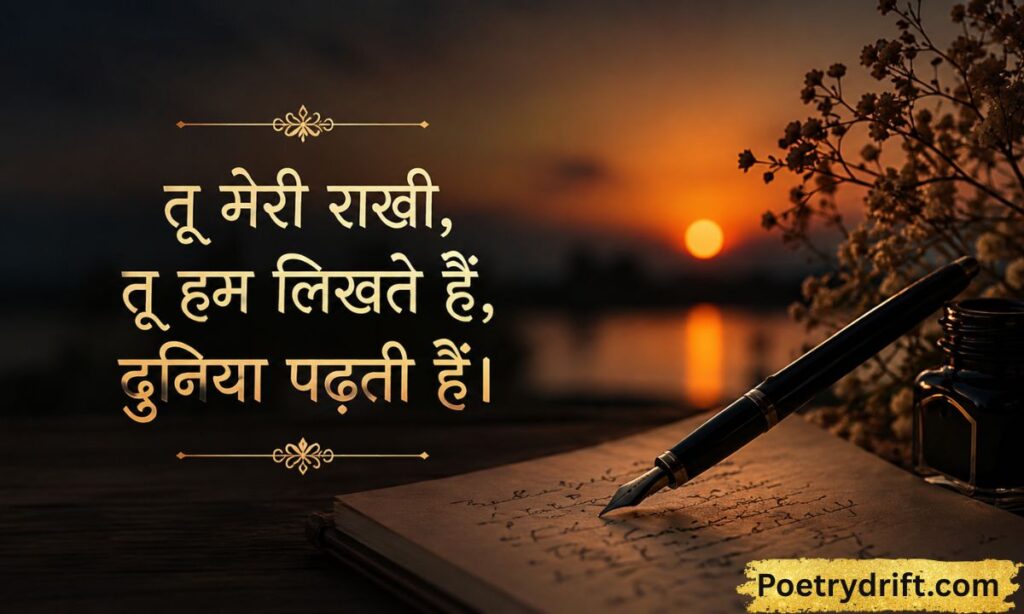 तू मेरी राखी,
तू हम लिखते हैं,
दुनिया पढ़ती हैं।
Poetrydrift.com